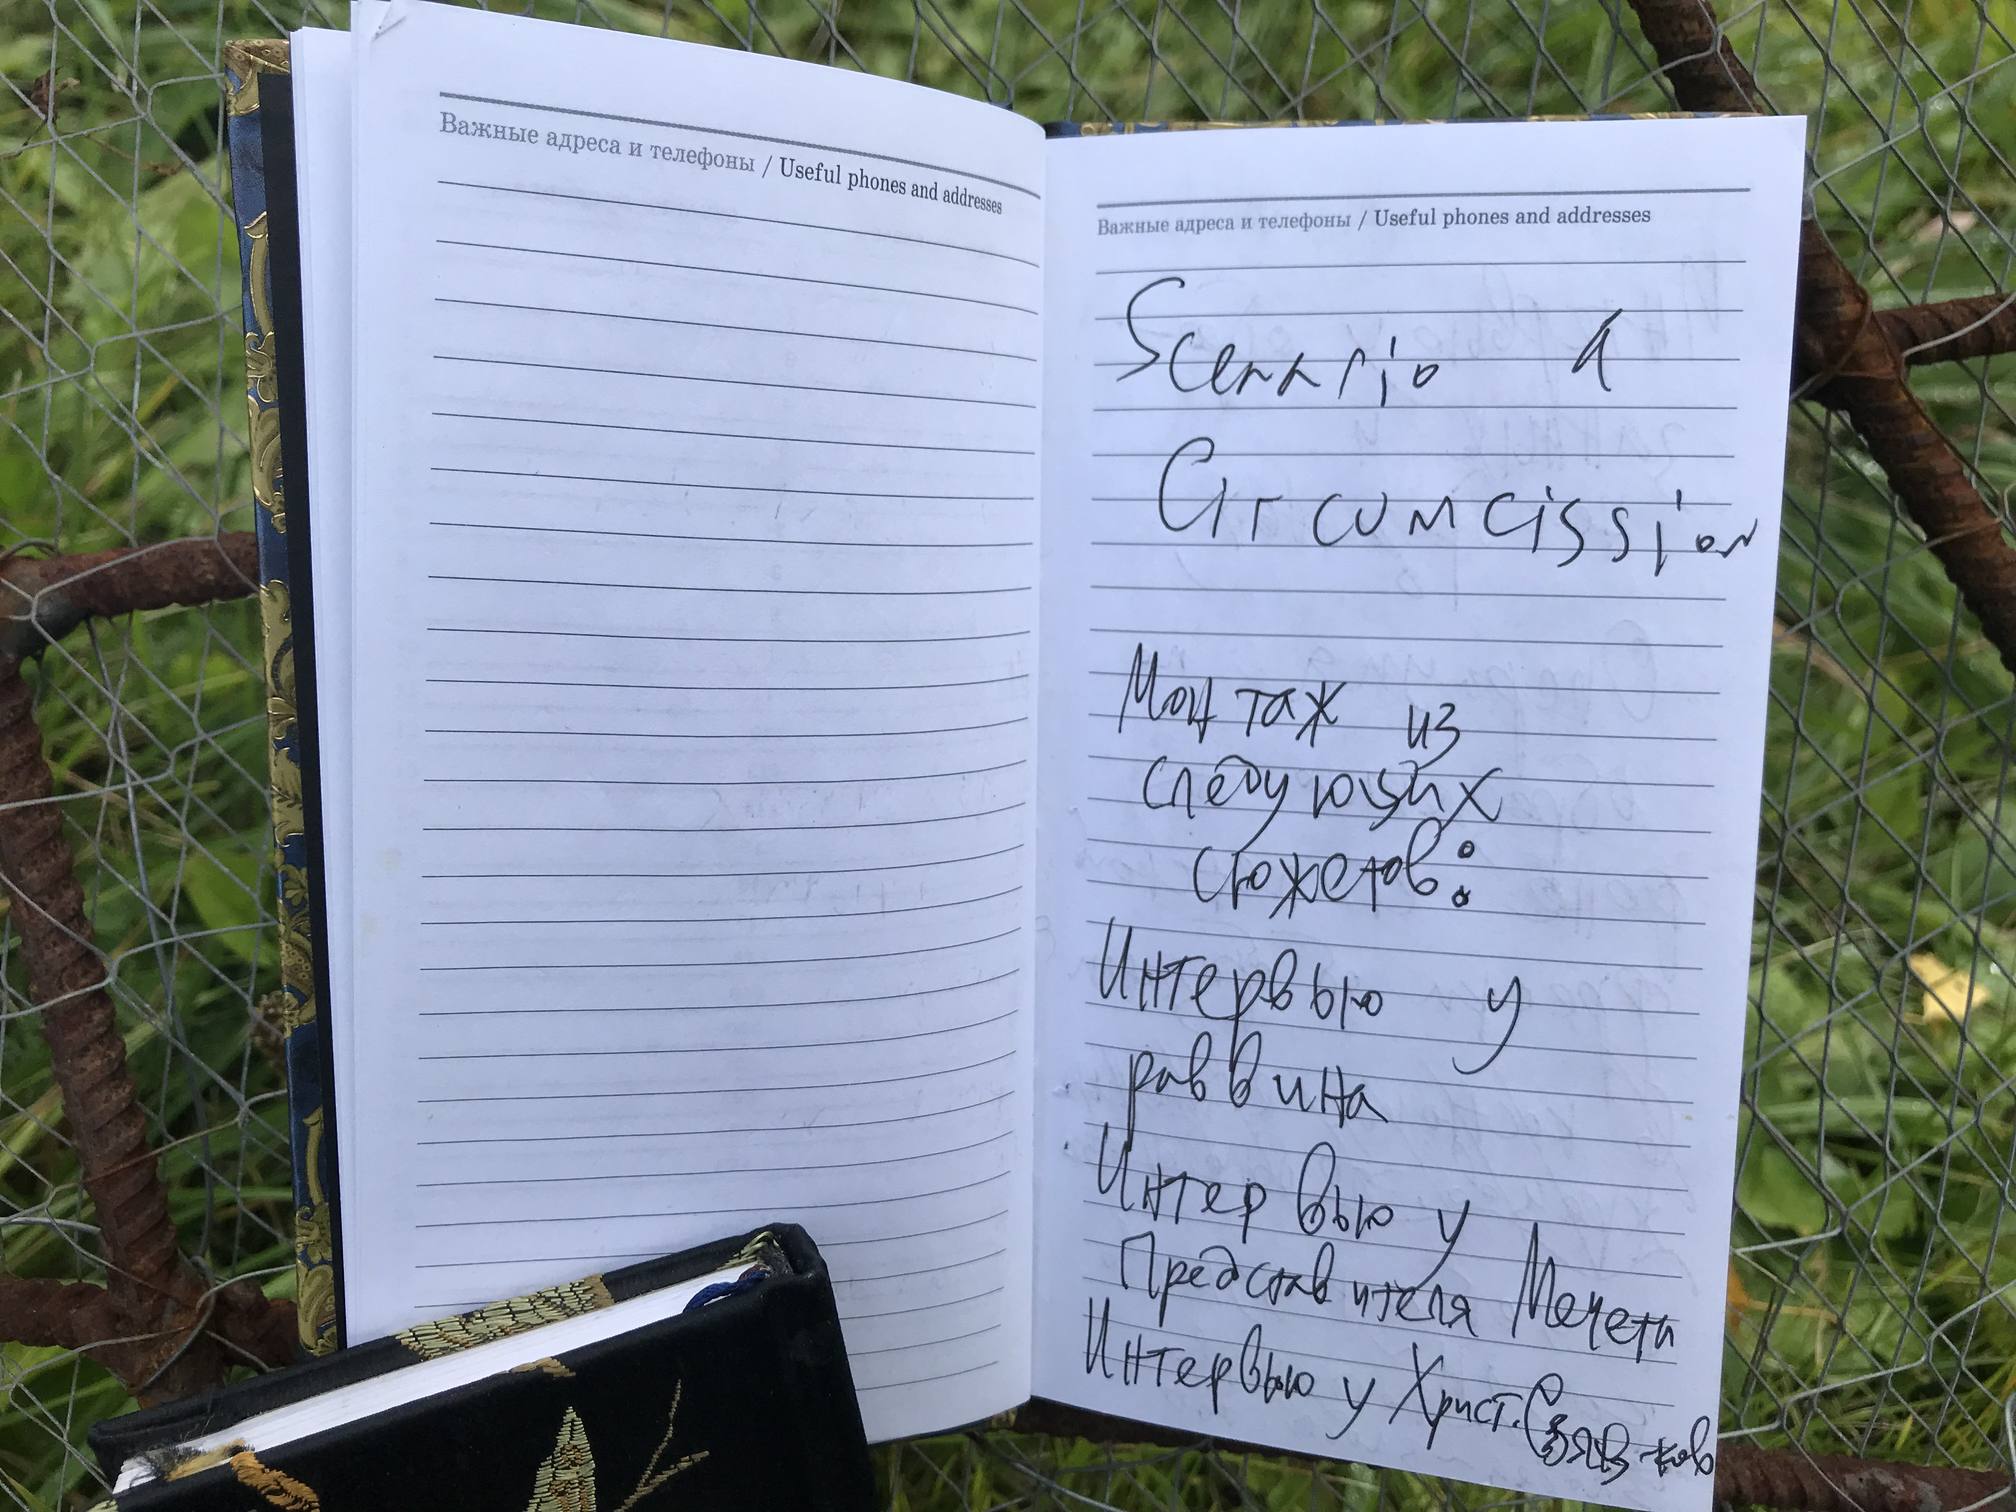 Важные адреса и телефоны / Useful phones and addresses
Важные адреса и телефоны / Useful phones and addresses
Scenario
Circumcission
Монтаж из
следующих
сюжетов:
Интервью у
раввина
Интервью у
Представителя Мечети
Интервью у Христ.